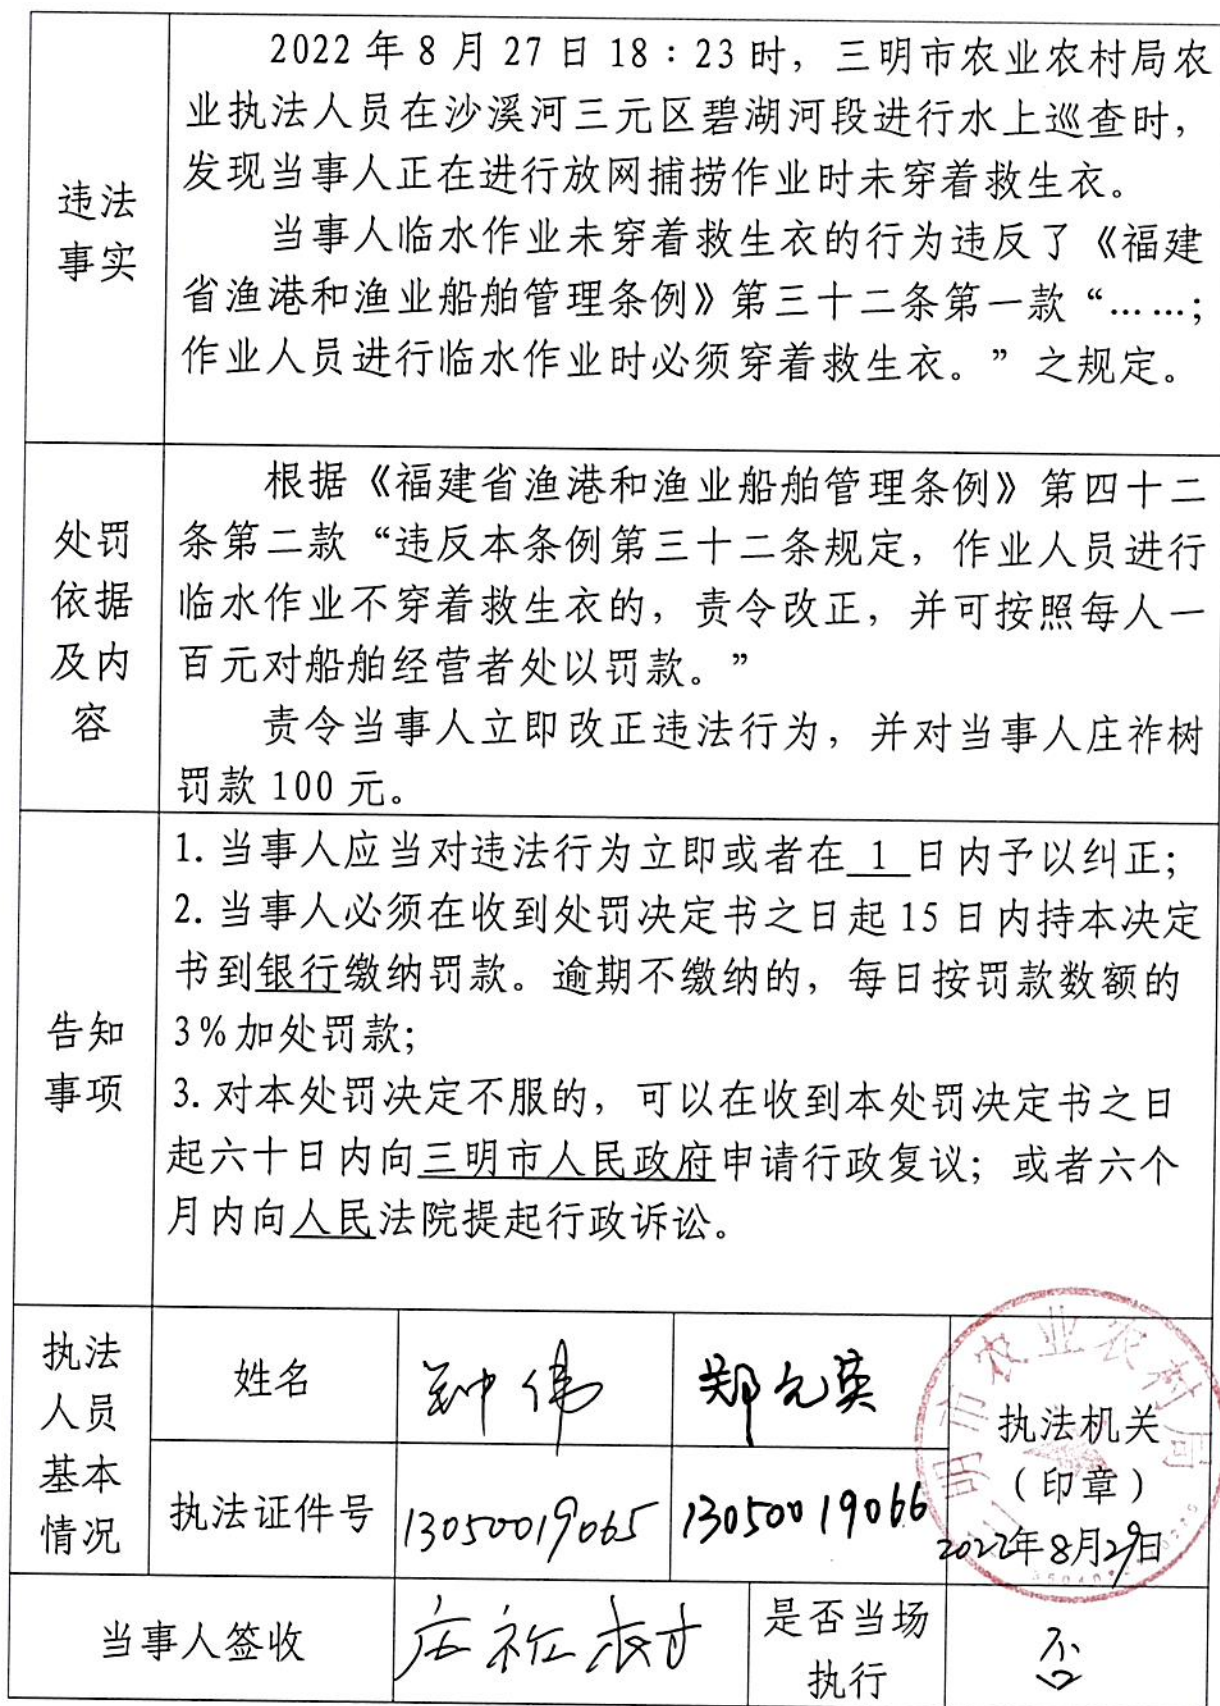 违法
事实
2022年8月27日18：23时，三明市农业农村局农
业执法人员在沙溪河三元区碧湖河段进行水上巡查时，
发现当事人正在进行放网捕捞作业时未穿着救生衣。
当事人临水作业未穿着救生衣的行为违反了《福建
省渔港和渔业船舶管理条例》第三十二条第一款“……；
作业人员进行临水作业时必须穿着救生衣。”之规定。
处罚
依据
及内
容
根据《福建省渔港和渔业船舶管理条例》第四十二
条第二款“违反本条例第三十二条规定，作业人员进行
临水作业不穿着救生衣的，责令改正，并可按照每人一
百元对船舶经营者处以罚款。”
责令当事人立即改正违法行为，并对当事人庄祚树
罚款100元。
告知
事项
1.当事人应当对违法行为立即或者在 1 日内予以纠正；
2.当事人必须在收到处罚决定书之日起15日内持本决定
书到银行缴纳罚款。逾期不缴纳的，每日按罚款数额的
3%加处罚款；
3.对本处罚决定不服的，可以在收到本处罚决定书之日
起六十日内向三明市人民政府申请行政复议；或者六个
月内向人民法院提起行政诉讼。
执法
人员
基本
情况
姓名
钟伟
郑允英
执法证件号
13050019065
13050019066
三明市农业农村局
执法机关
（印章）
2022年8月29日
当事人签收
庄祚树
是否当场
执行
否